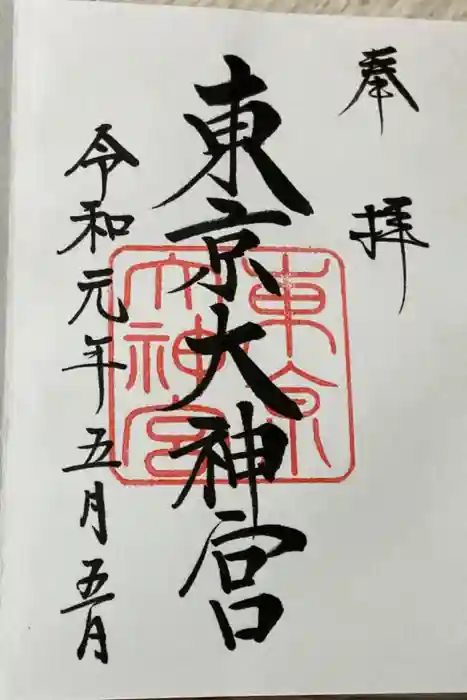 奉拝
東京大神宮
令和元年五月五日
東京
大神宮